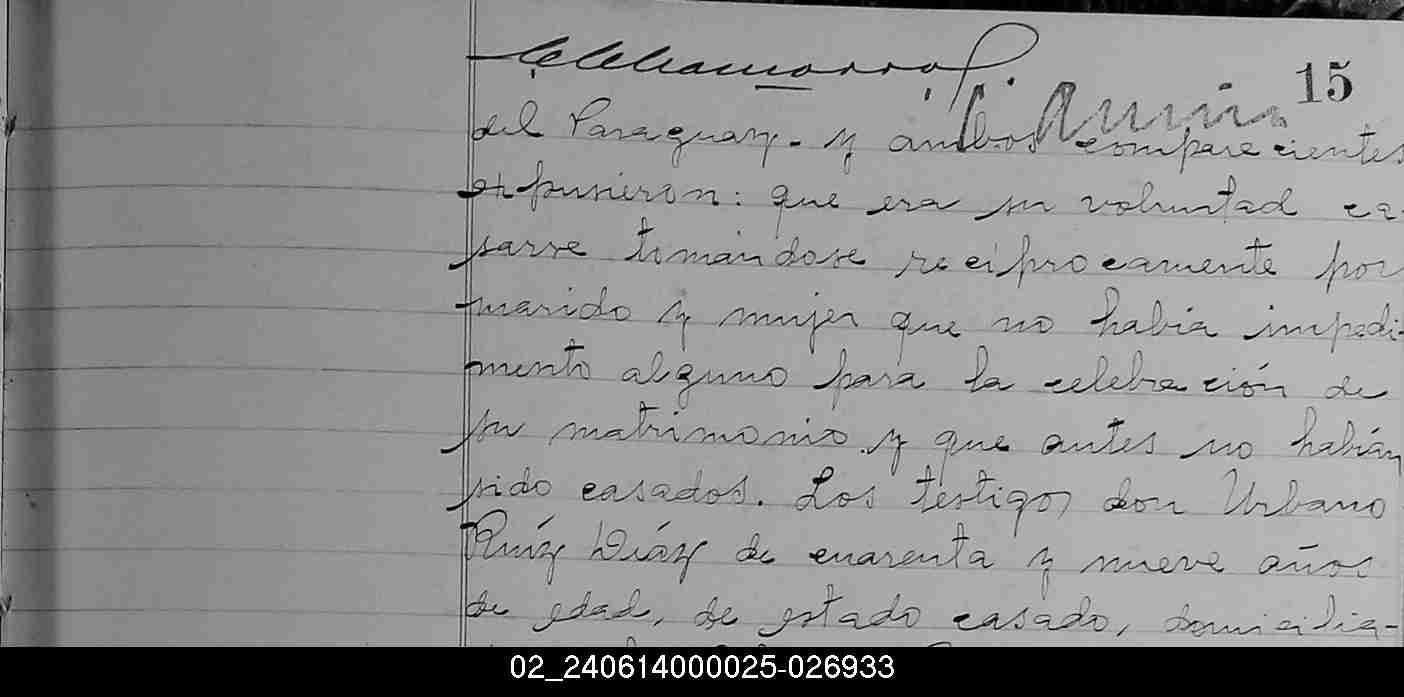 15
del Paraguay.- y ambos comparecientes
expusieron: que era su voluntad ca-
sarse tomándose reciprocamente por
marido y mujer que no habia impedi-
mento alguno para la celebración de
su matrimonio y que antes no habían
sido casados. Los testigos don Urbano
Ruíz Diáz de cuarenta y nueve años
de edad, de estado casado, domicilia-
02_240614000025-026933